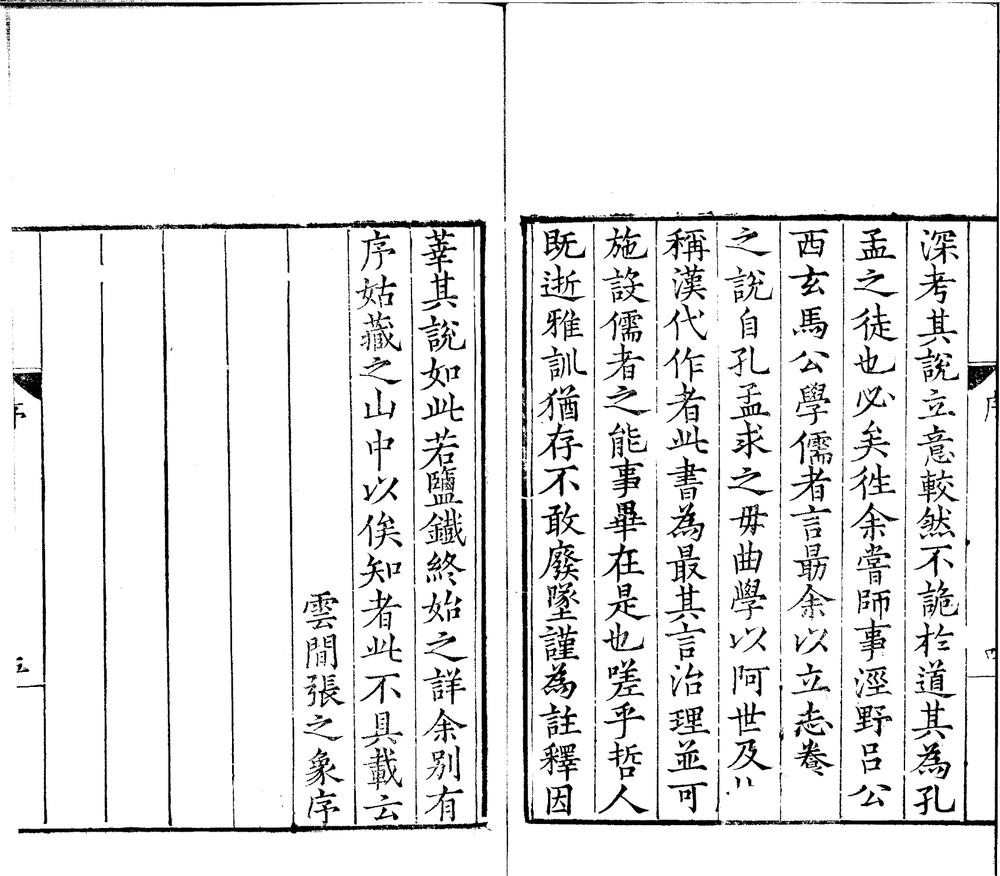 深考其說立意較然不詭於道其為孔
孟之徒也必矣徃余嘗師事涇野呂公
西玄馬公學儒者言最余以立志養
之說自孔孟求之毋曲學以阿世及
稱漢代作者此書為最其言治理並可
施設儒者之能事畢在是也嗟乎哲人
既逝雅訓猶存不敢廢墜謹為註釋因
莘其說如此若鹽鐵終始之詳余別有
序姑藏之山中以俟知者此不具載云
雲間張之象序
序
五